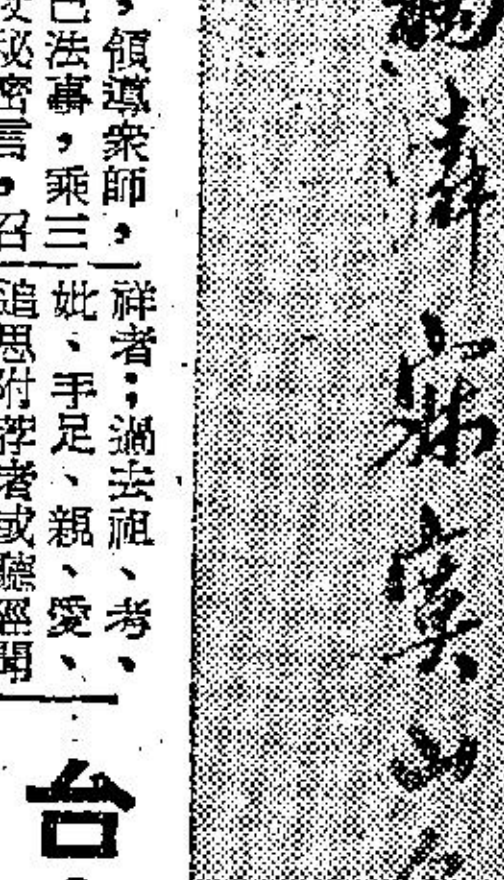 寂寞山
，領導衆師，
法事，乘三
秘密言，召
祥者；過去祖、考、
妣、手足、親、愛、
追思附荐者或聽經聞
台